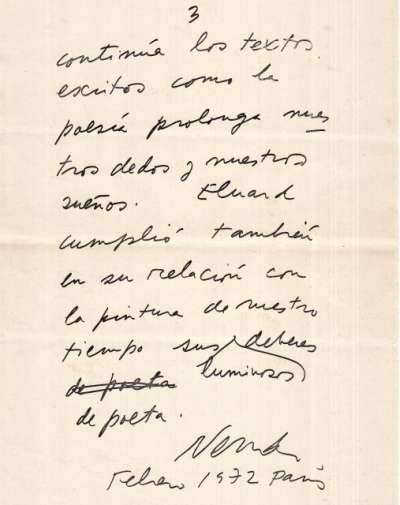 3
continúa los textos
escritos como la
poesía prolonga nues
tros dedos y nuestros
sueños. Eluard
cumplió también
en su relación con
la pintura de nuestro
tiempo sus deberes
de poeta luminosos
de poeta.
Neruda
Febrero 1972 París